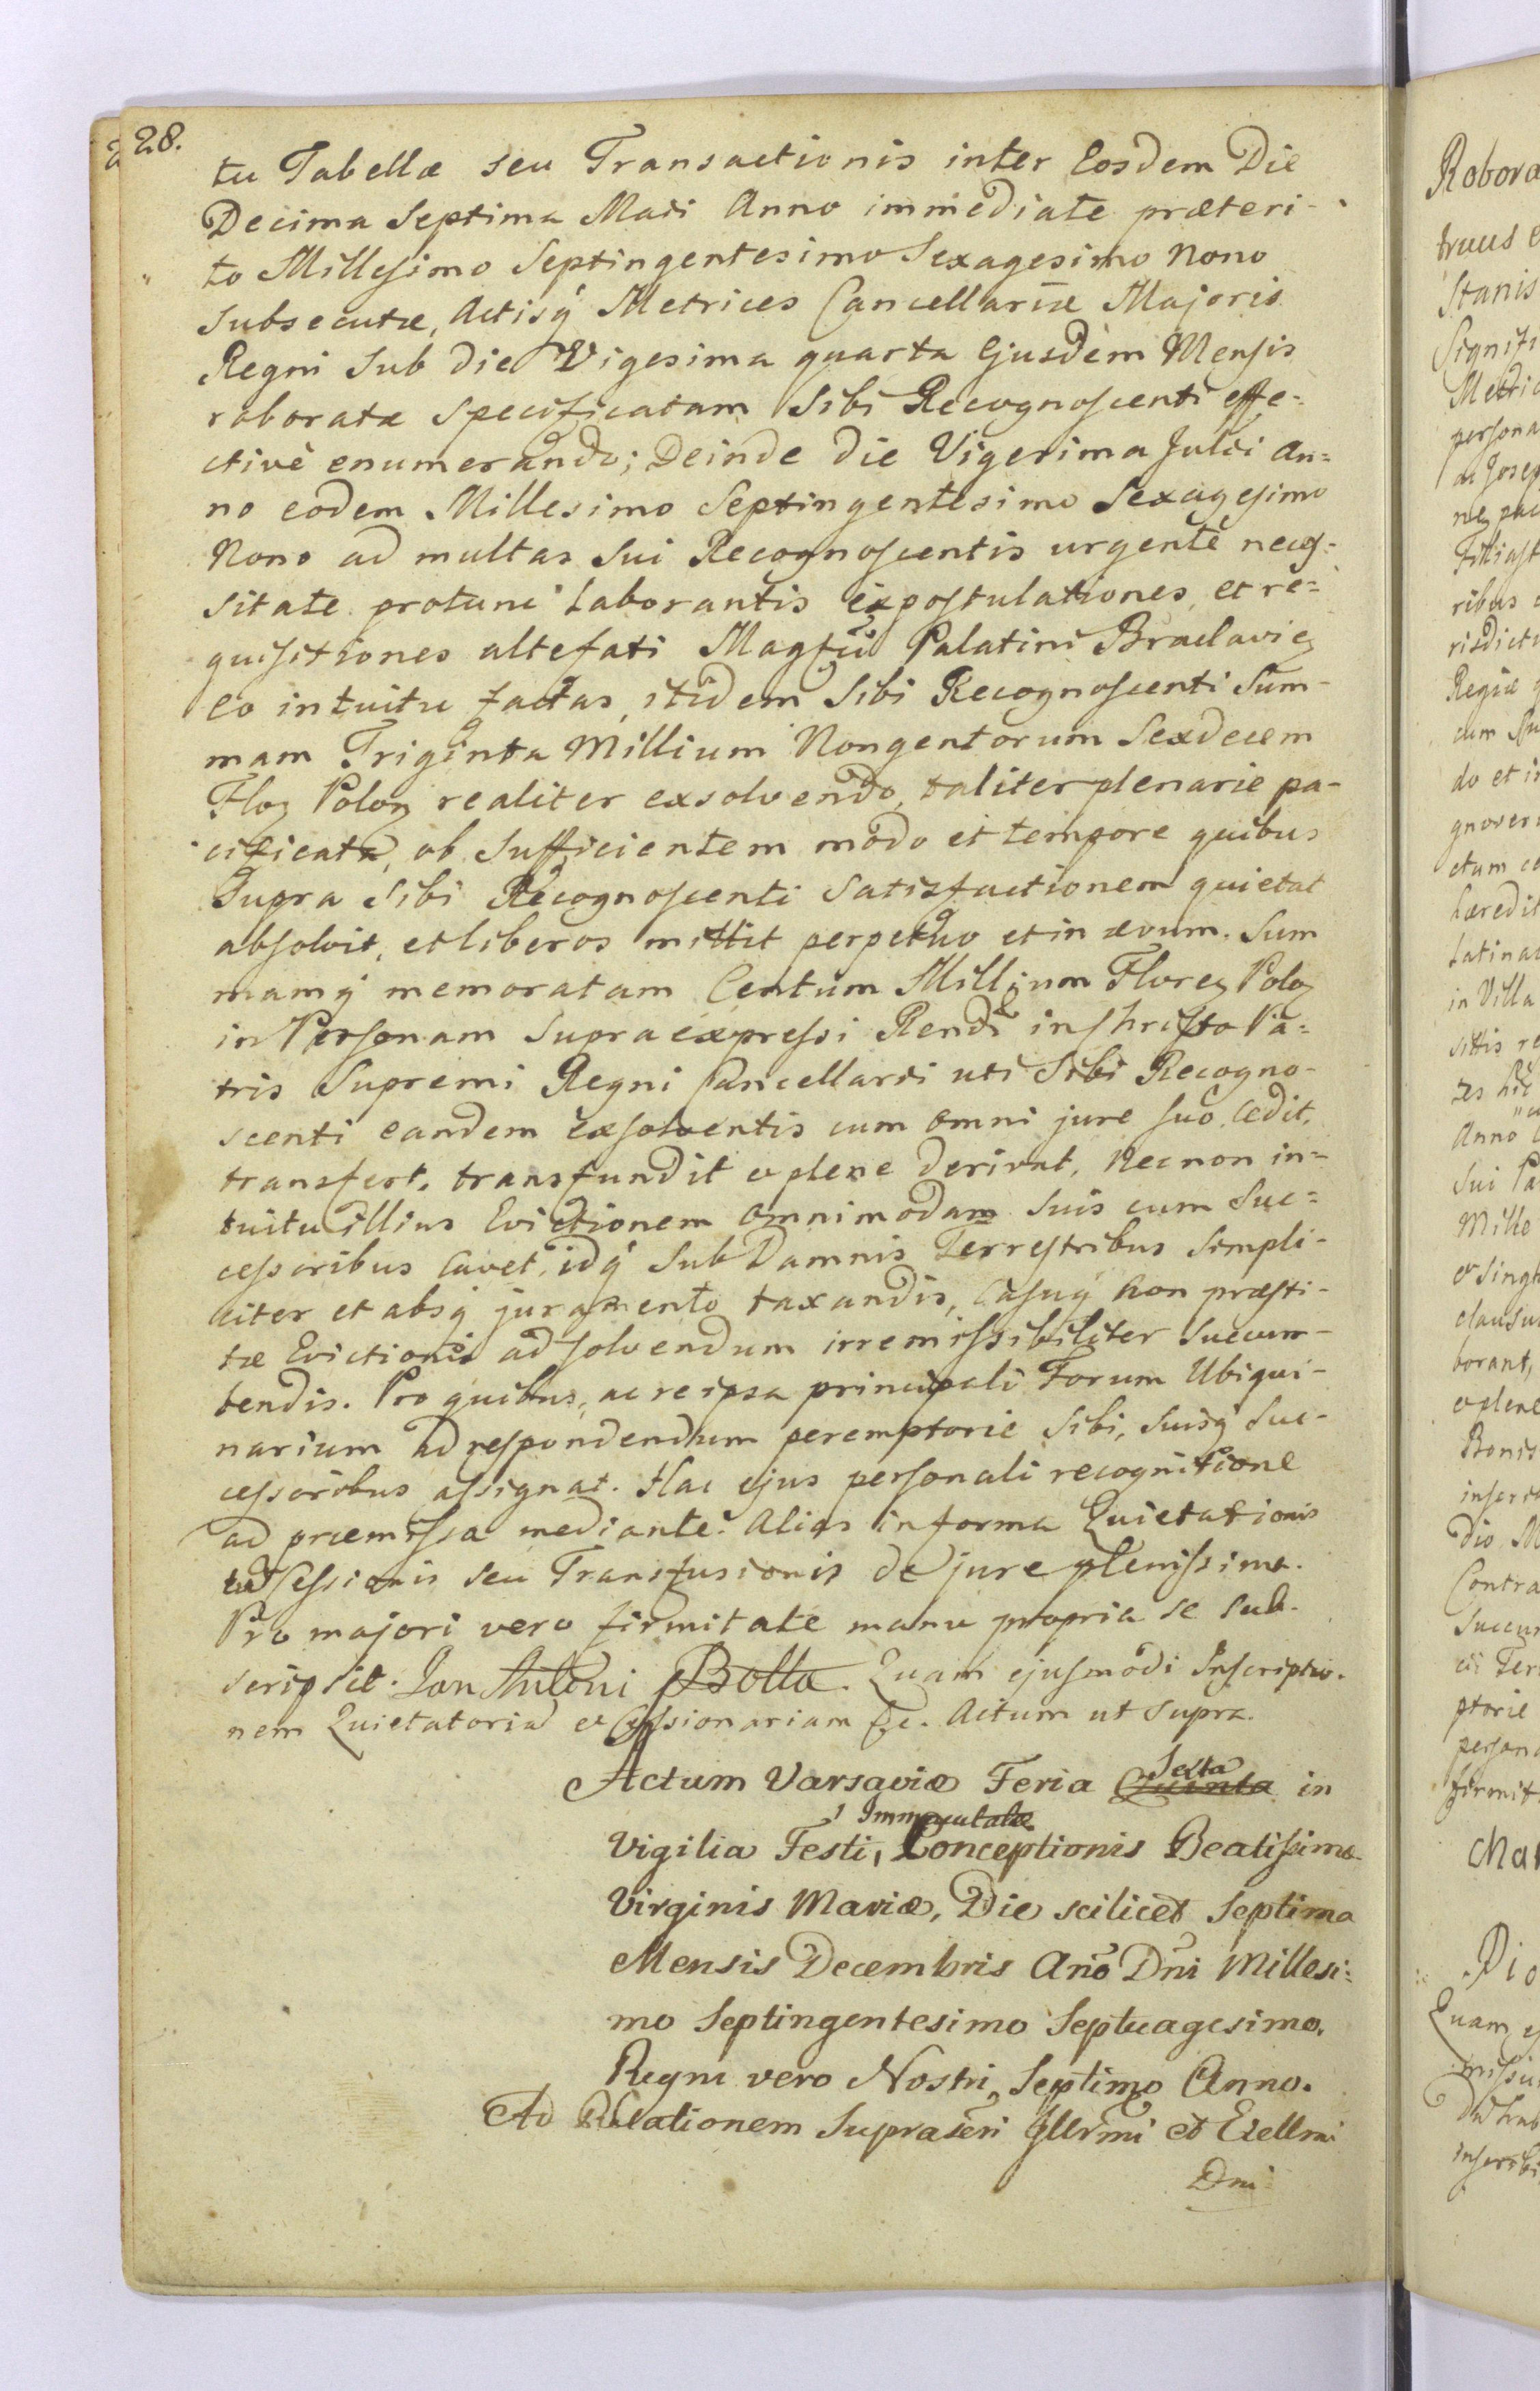 28.
tu Tabellæ seu Transactionis inter Eosdem Die
Decima Septima Maii Anno immediate præteri-
to Millesimo Septingentesimo Sexagesimo Nono
subsecutæ, Actisq́ Metrices Cancellariæ Majoris
Regni sub die Vigesima quarta Ejusdem Mensis
roboratæ specificatam sibi Recognoscenti effe-
ctivè enumerando; Deinde die Vigesima Julii An-
no eodem Millesimo Septingentesimo Sexagesimo
Nono ad multas sui Recognoscentis urgente neces-
sitate protunc laborantis expostulationes et re-
quisitiones altefati Palatini Braclavien
eo intuitu factas, itidem sibi Recognoscenti Sum-
mam Triginta Millium Nongentorum Sexdecem
Flor Polon realiter exsolvendo, taliter plenarie pa-
cificatæ, ob sufficientem modo et tempore quibus
Supra sibi Recognoscenti satisfactionem quietat
absolvit, et liberos mittit perpetuo et in ævum. Sum
mamq́ memoratam Centum Millium Floren Polon
in Personam supraexpressi Rendi in Christo Pa-
tris Supremi Regni Cancellarii uti sibi Recogno-
scenti eandem exsolventis cum omni jure suo cedit,
transfert, transfundit et plene derivat, Nec non in-
tuitu illius Evictionem omnimodam suis cum suc-
cessoribus cavet, idq́ sub Damnis Terrestribus simpli-
citer et absq́ juramento taxandis, casuq́ non præsti-
tæ Evictionis ad solvendum irremissibiliter succum-
bendis. Pro quibus, ac re ipsa principali Forum Ubiqui-
narium ad respondendum peremptorie sibi, suisq́ suc-
cessoribus assignat. Hac ejus personali recognitione
ad præmissa mediante. Alias in forma Quietationis
et Cessionis seu Transfusionis de jure plenissima.
Pro majori vero firmitate manu propria se sub-
scripsit. Jan Antoni Botta. Quam ejusmodi Inscriptio-
nem Quietatoriam et Cessionariam &c. Actum ut supra.
Actum Varsaviæ Feria Quinta Sexta in
Vigilia Festi, Immaculatæ Conceptionis Beatissimæ
Virginis Mariæ, Die scilicet Septima
Mensis Decembris Ano Dni Millesi-
mo Septingentesimo Septuagesimo.
Regni vero Nostri, Septimo Anno.
Ad Relationem Suprascri Illrmi et Excllmi
Dni